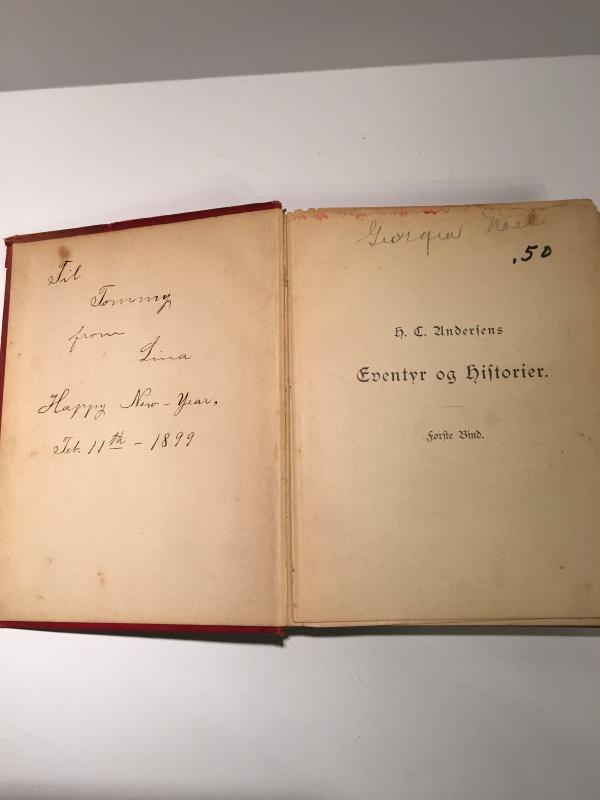 Til
Tommy
from
Lina
Happy New-Year.
Feb. 11th - 1899
Georgia Noel
.50
H. C. Andersens
Eventyr og Historier.
Første Bind.